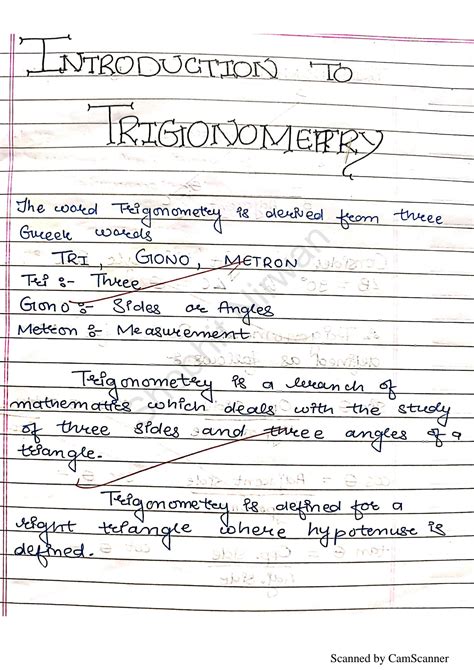 INTRODUCTION TO
TRIGONOMETRY
The word Trigonometry is derived from three
Greek words
TRI, GONO, METRON
Tri :- Three
Gono :- Sides or Angles
Metron :- Measurement
Trigonometry is a branch of
mathematics which deals with the study
of three sides and three angles of a
triangle.
Trigonometry is defined for a
right triangle where hypotenuse is
defined.
Scanned by CamScanner